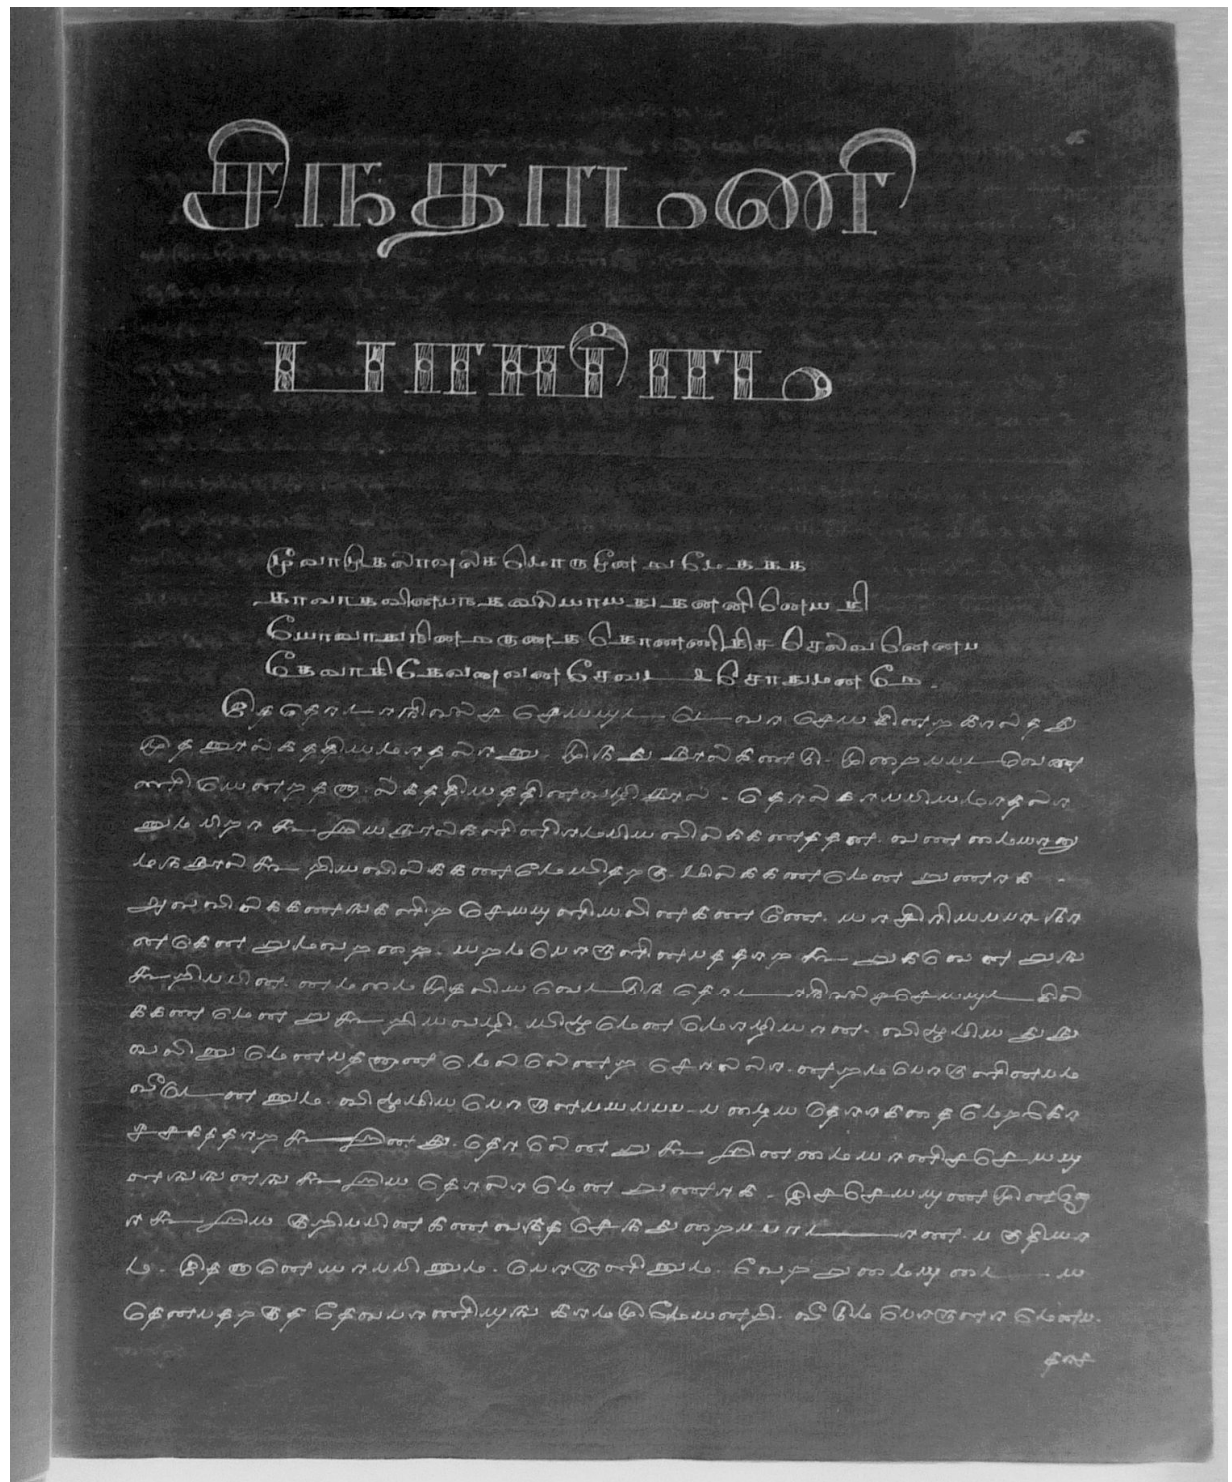 சிநதாமணி
பாயிரம
மூவாமுதலாவுலகமொருமூனறுமேதத
தாவாதவினபநதலையாயதுதனனினெயதி
யோவாதுநினறகுணததொணணிதிசசெலவனெனப
தேவாதிதேவனவனசேவடிசேரதுமனறே.
இததொடாநிலைசசெயயுடடேவாசெயகினறகாலதது
முதனூலகததியமாதலானு. முநதுநூலகணடு. முறைபபடவெண
ணியெனறதனாலகததியததினவழிநூல. தொலகாபபியமாதலா
னுமபிறாகூறியநூலகளினிரமபியவிலககணததன. வனமையானு
மநநூலகூறியவிலககணமேயிதறகுமிலககணமெனறுணாக.
அவவிலககணஙகளிறசெயயுளியலினகணணே. யாசிரியபபாநா
னகெனறுமவறறை. யறமபொருளினபததாறகூறுகவெனறுங
கூறியபின. னமமைமுதலியவெடடுநதொடாநிலைசசெயயுடகில
ககணமெனறுகூறியவழி. யிழுமெனமொழியான. விழுமியதுநு
வலினுமெனபதனானமெலலெனறசொலலா. னறமபொருளினபம
வீடெனனும. விழுமியபொருளபயபபபபழையதோாகதைமேறகொ
சசகததாறகூறினது. தோலெனறுகூறினமையானிசசெயயு
ளஙஙனஙகூறியதோலாமெனறுணாக. இசசெயயுணமுனனோ
ாகூறியகுறிபபினகணவநதசெநதுறைபபாடாண. பகுதியா
ம. இதனுளையாபபினும. பொருளினும. வேறறுமையுடைய
தெனபதறகுததேவபாணியுஙகாமமுமேயனறி. வீடுமபொருளாமெனப.